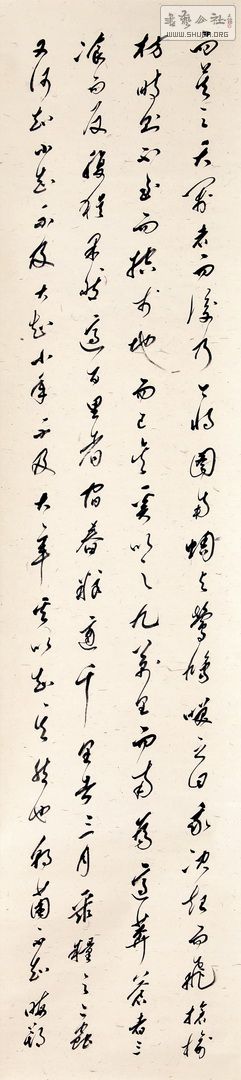 書藝公社
WWW.SHUFA.ORG
而莫之夭閼者而後乃今將圖南蜩與鷽鳩笑之曰我決起而飛搶榆
枋時則不至而控於地而已矣奚以之九萬里而南為適莽蒼者三
飡而反腹猶果然適百里者宿舂糧適千里者三月聚糧之二蟲
又何知小知不及大知小年不及大年奚以知其然也朝菌不知晦朔